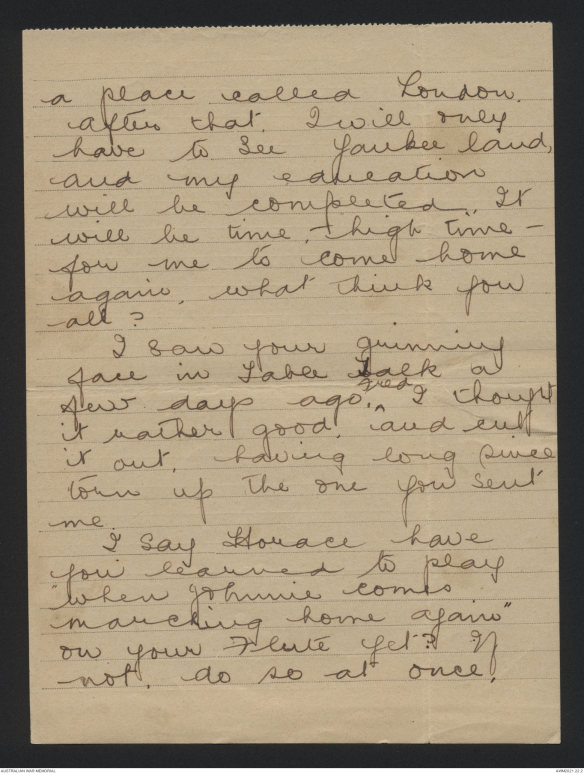 a place called London.
After that. I will only
have to see Yankee land,
and my education
will be completed. It
will be time, - high time -
for me to come home
again, what think you
all?
I saw your grinning
face in Table Talk a
few days ago. Fred I thought
it rather good, and cut
it out, having long since
torn up the one you sent
me.
I say Horace have
you learned to play
"when Johnnie comes
marching home again"
on your Flute yet? If
not, do so at once.
AUSTRALIAN WAR MEMORIAL